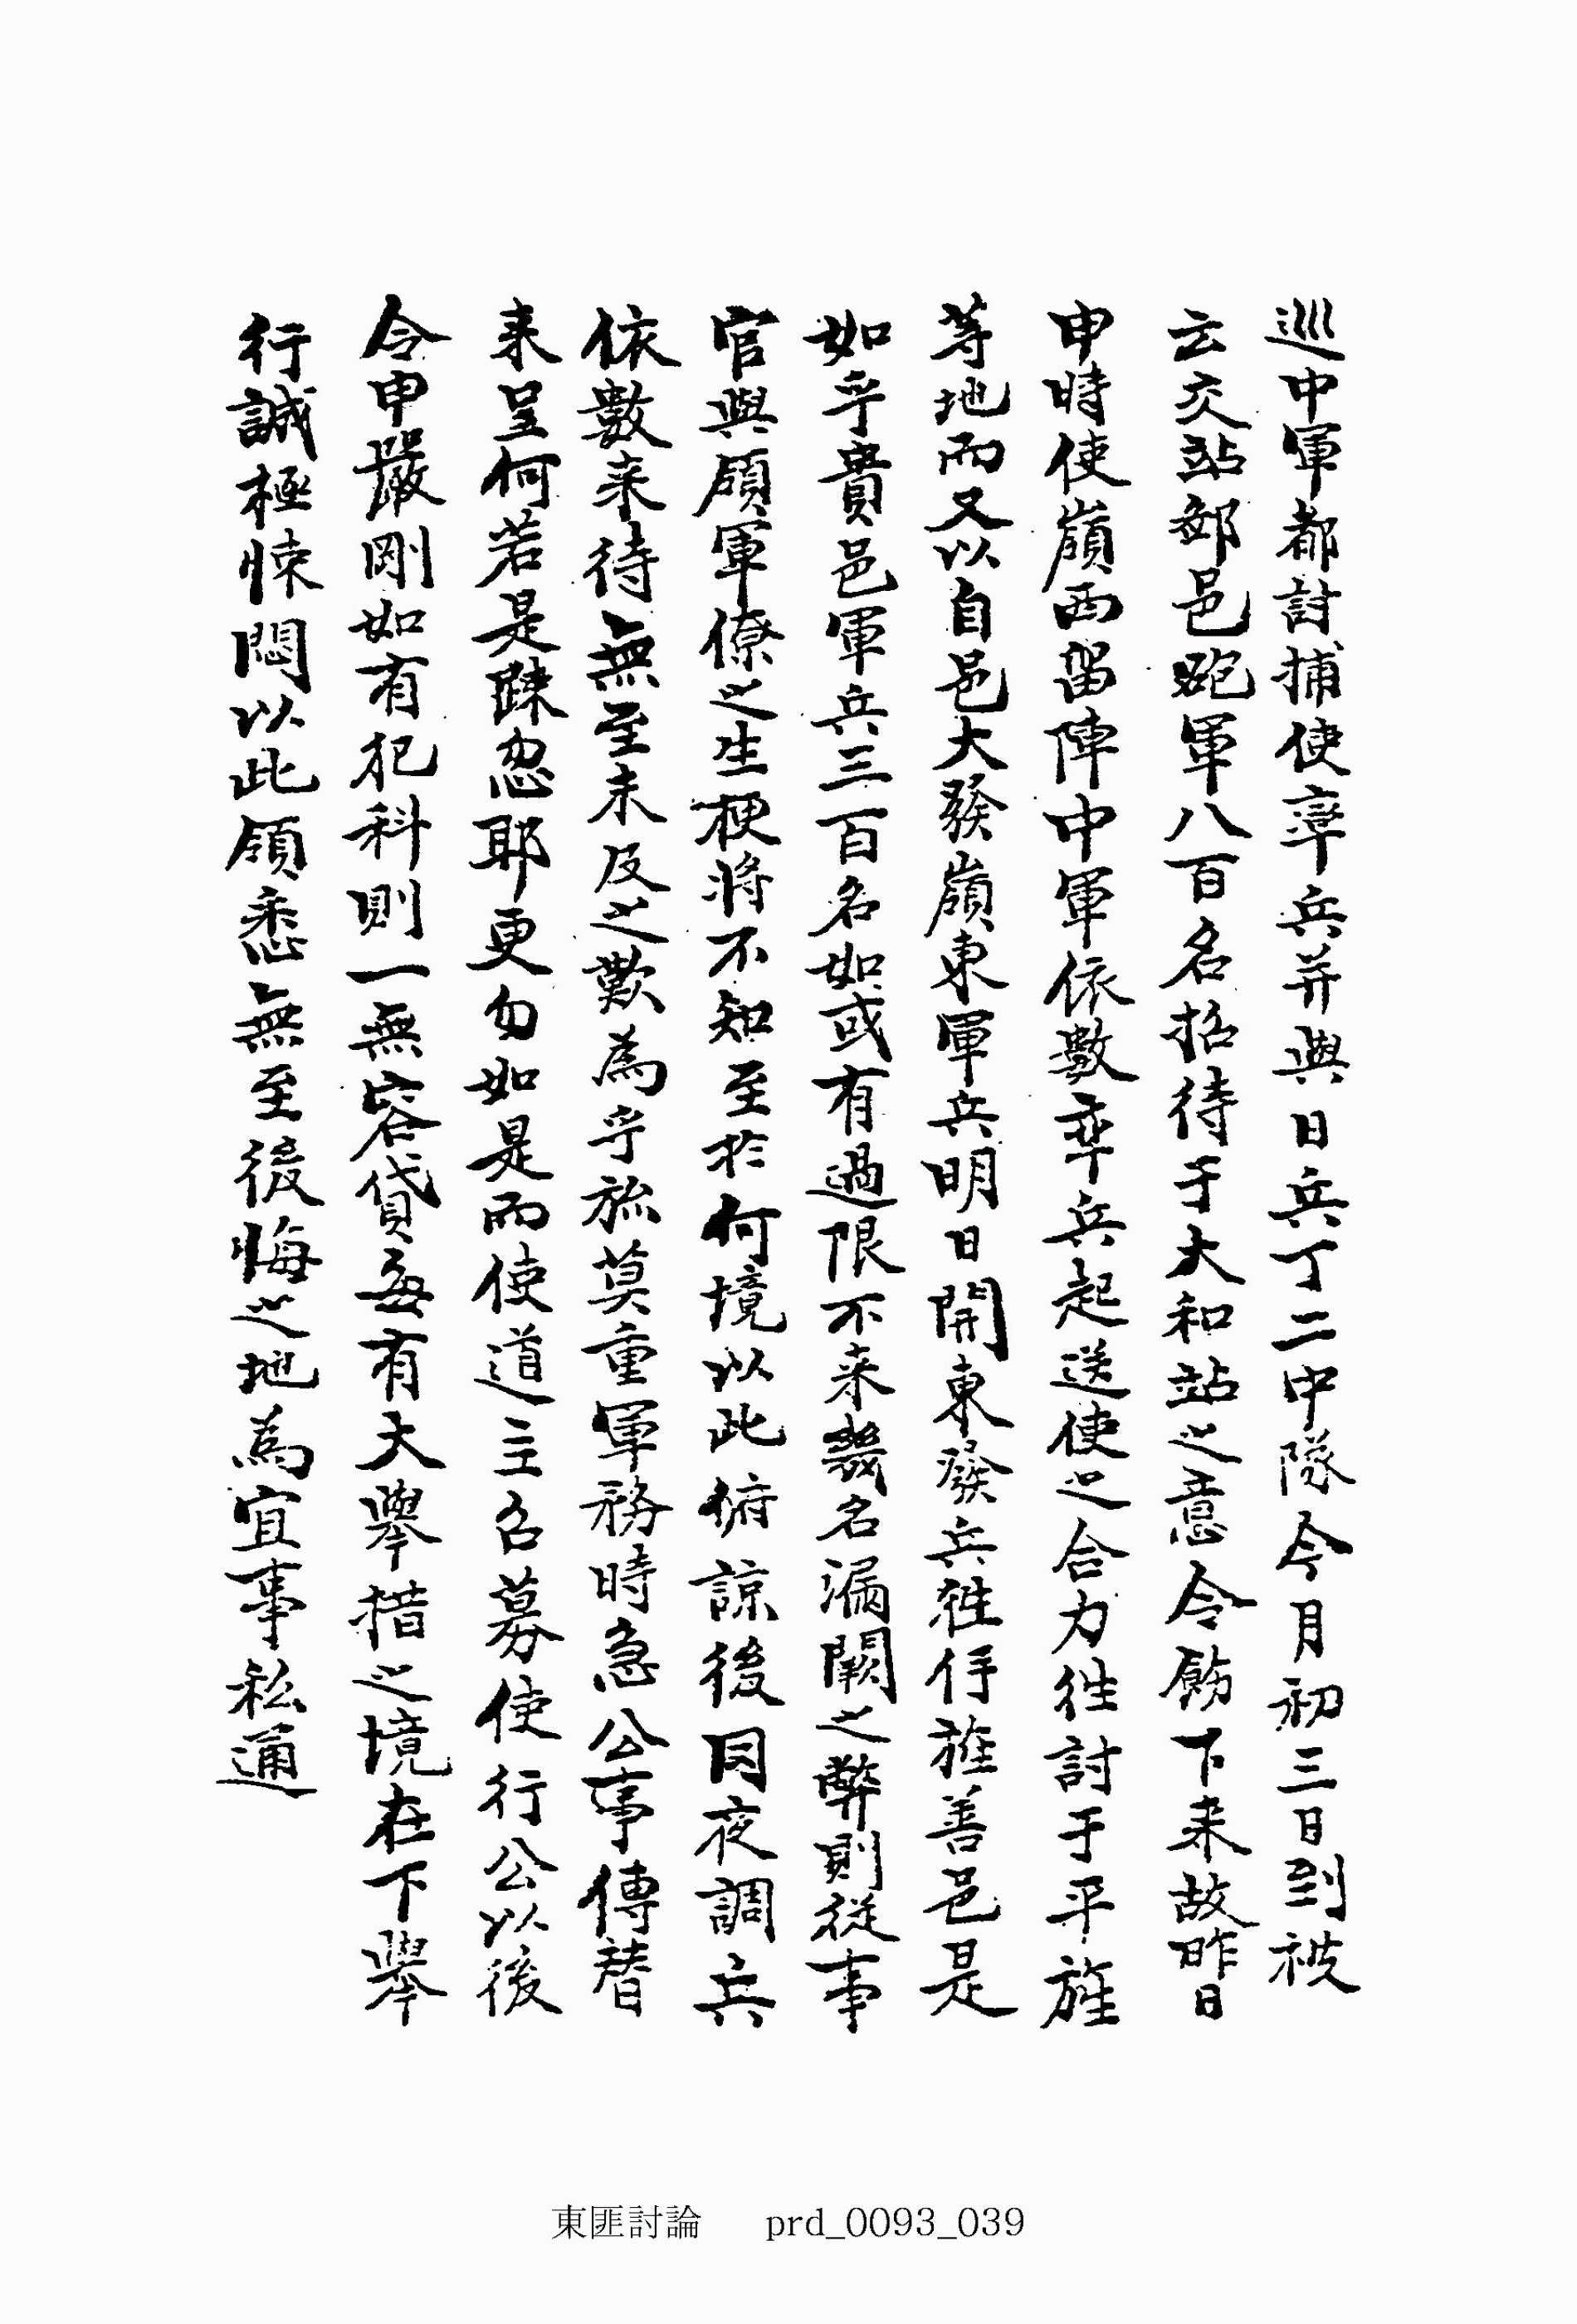 巡中軍都討捕使率兵并與日兵丁二中隊今月初三日到被
云交站郵邑砲軍八百名招待于大和站之意令飭下来故昨日
申時使嶺西留陣中軍依數率兵起送使之合力往討于平旌
等地而又以自邑大發嶺東軍兵明日開東發兵往待旌善邑是
如乎貴邑軍兵三百名如或有過限不来幾名漏闕之弊則從事
官與領軍僚之生梗將不知至於何境以此俯諒後日夜調兵
依數来待無至未及之歎為乎旀莫重軍務時急公事傳替
来呈何若是踈忽耶更勿如是而使道主召募使行公以後
令申嚴剛如有犯科則一無容貸每有大擧措之境在下擧
行誠極悚悶以此領悉無至後悔之地為宜事私通
東匪討論 prd_0093_039